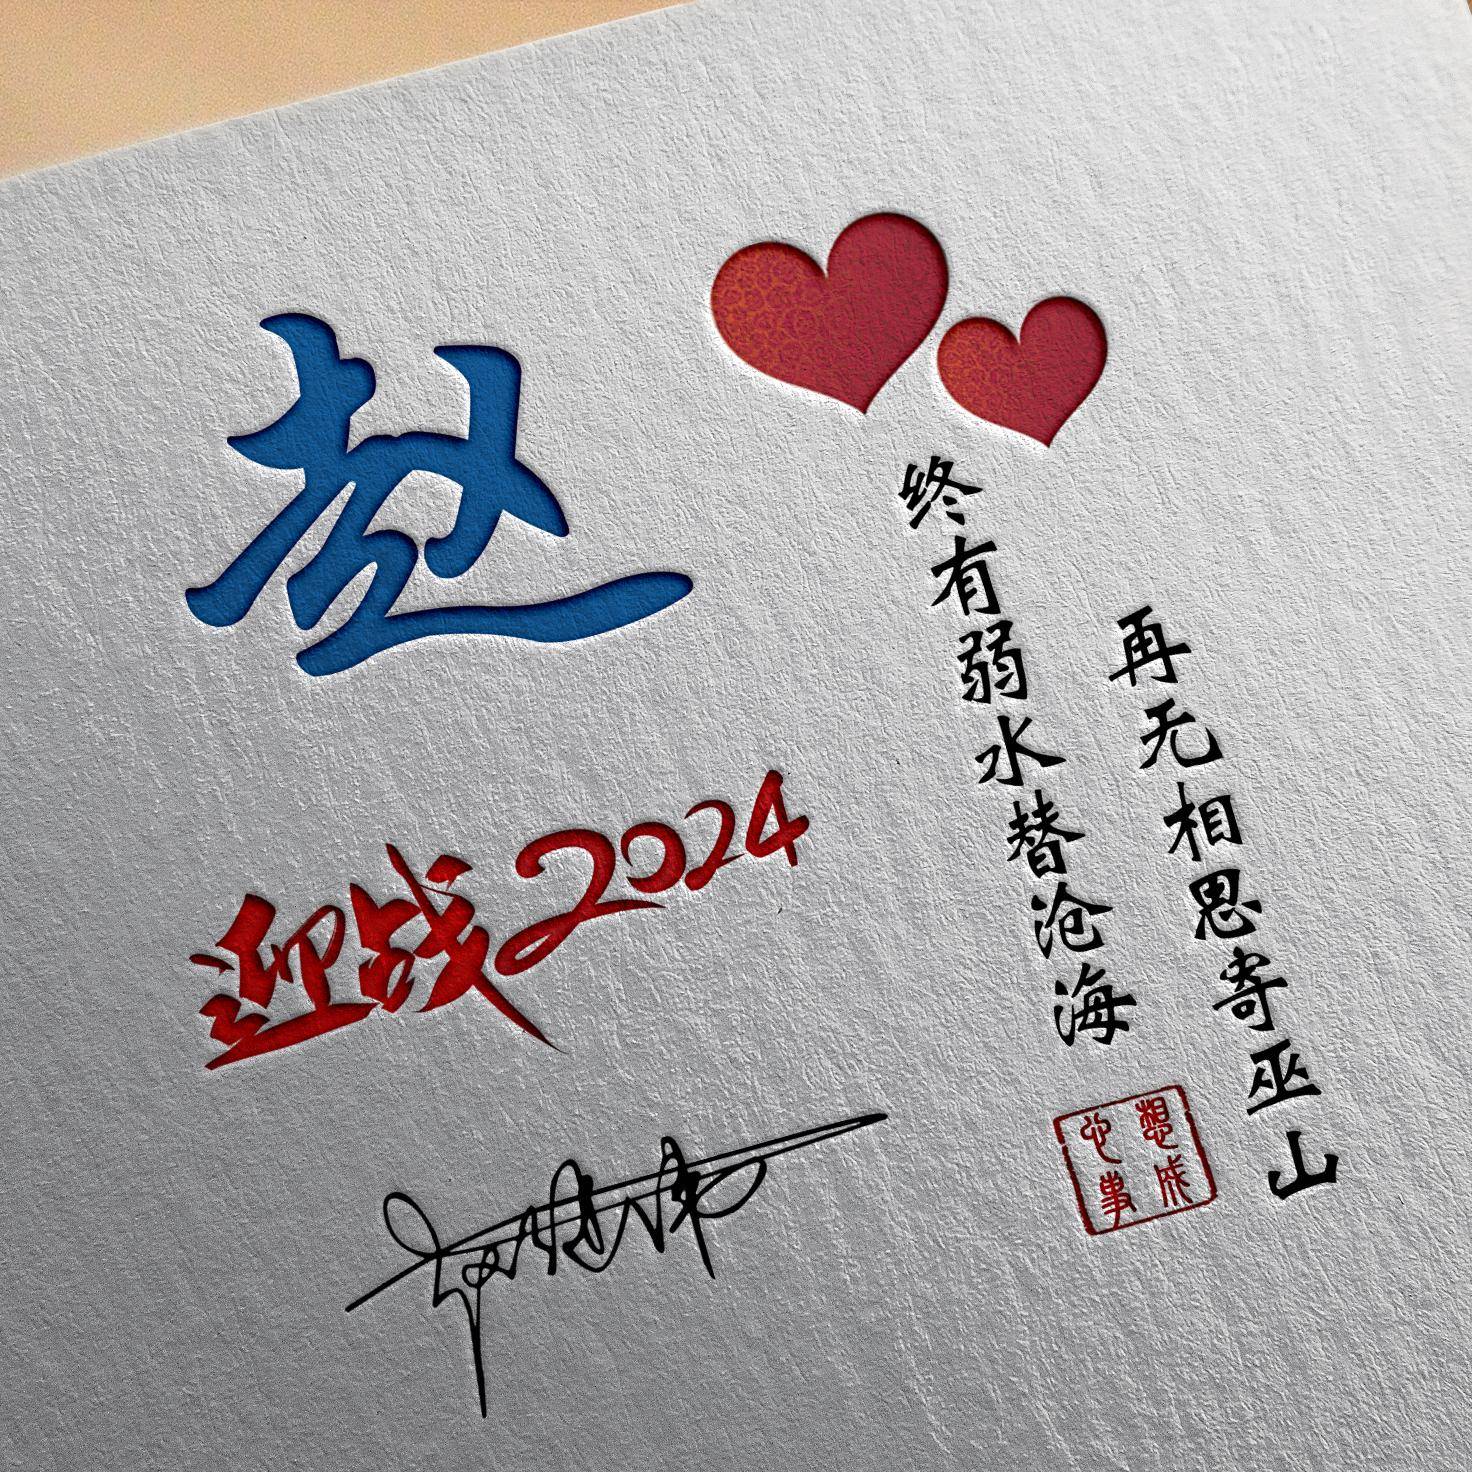 赵
迎战2024
终有弱水替沧海
再无相思寄巫山
心想事成